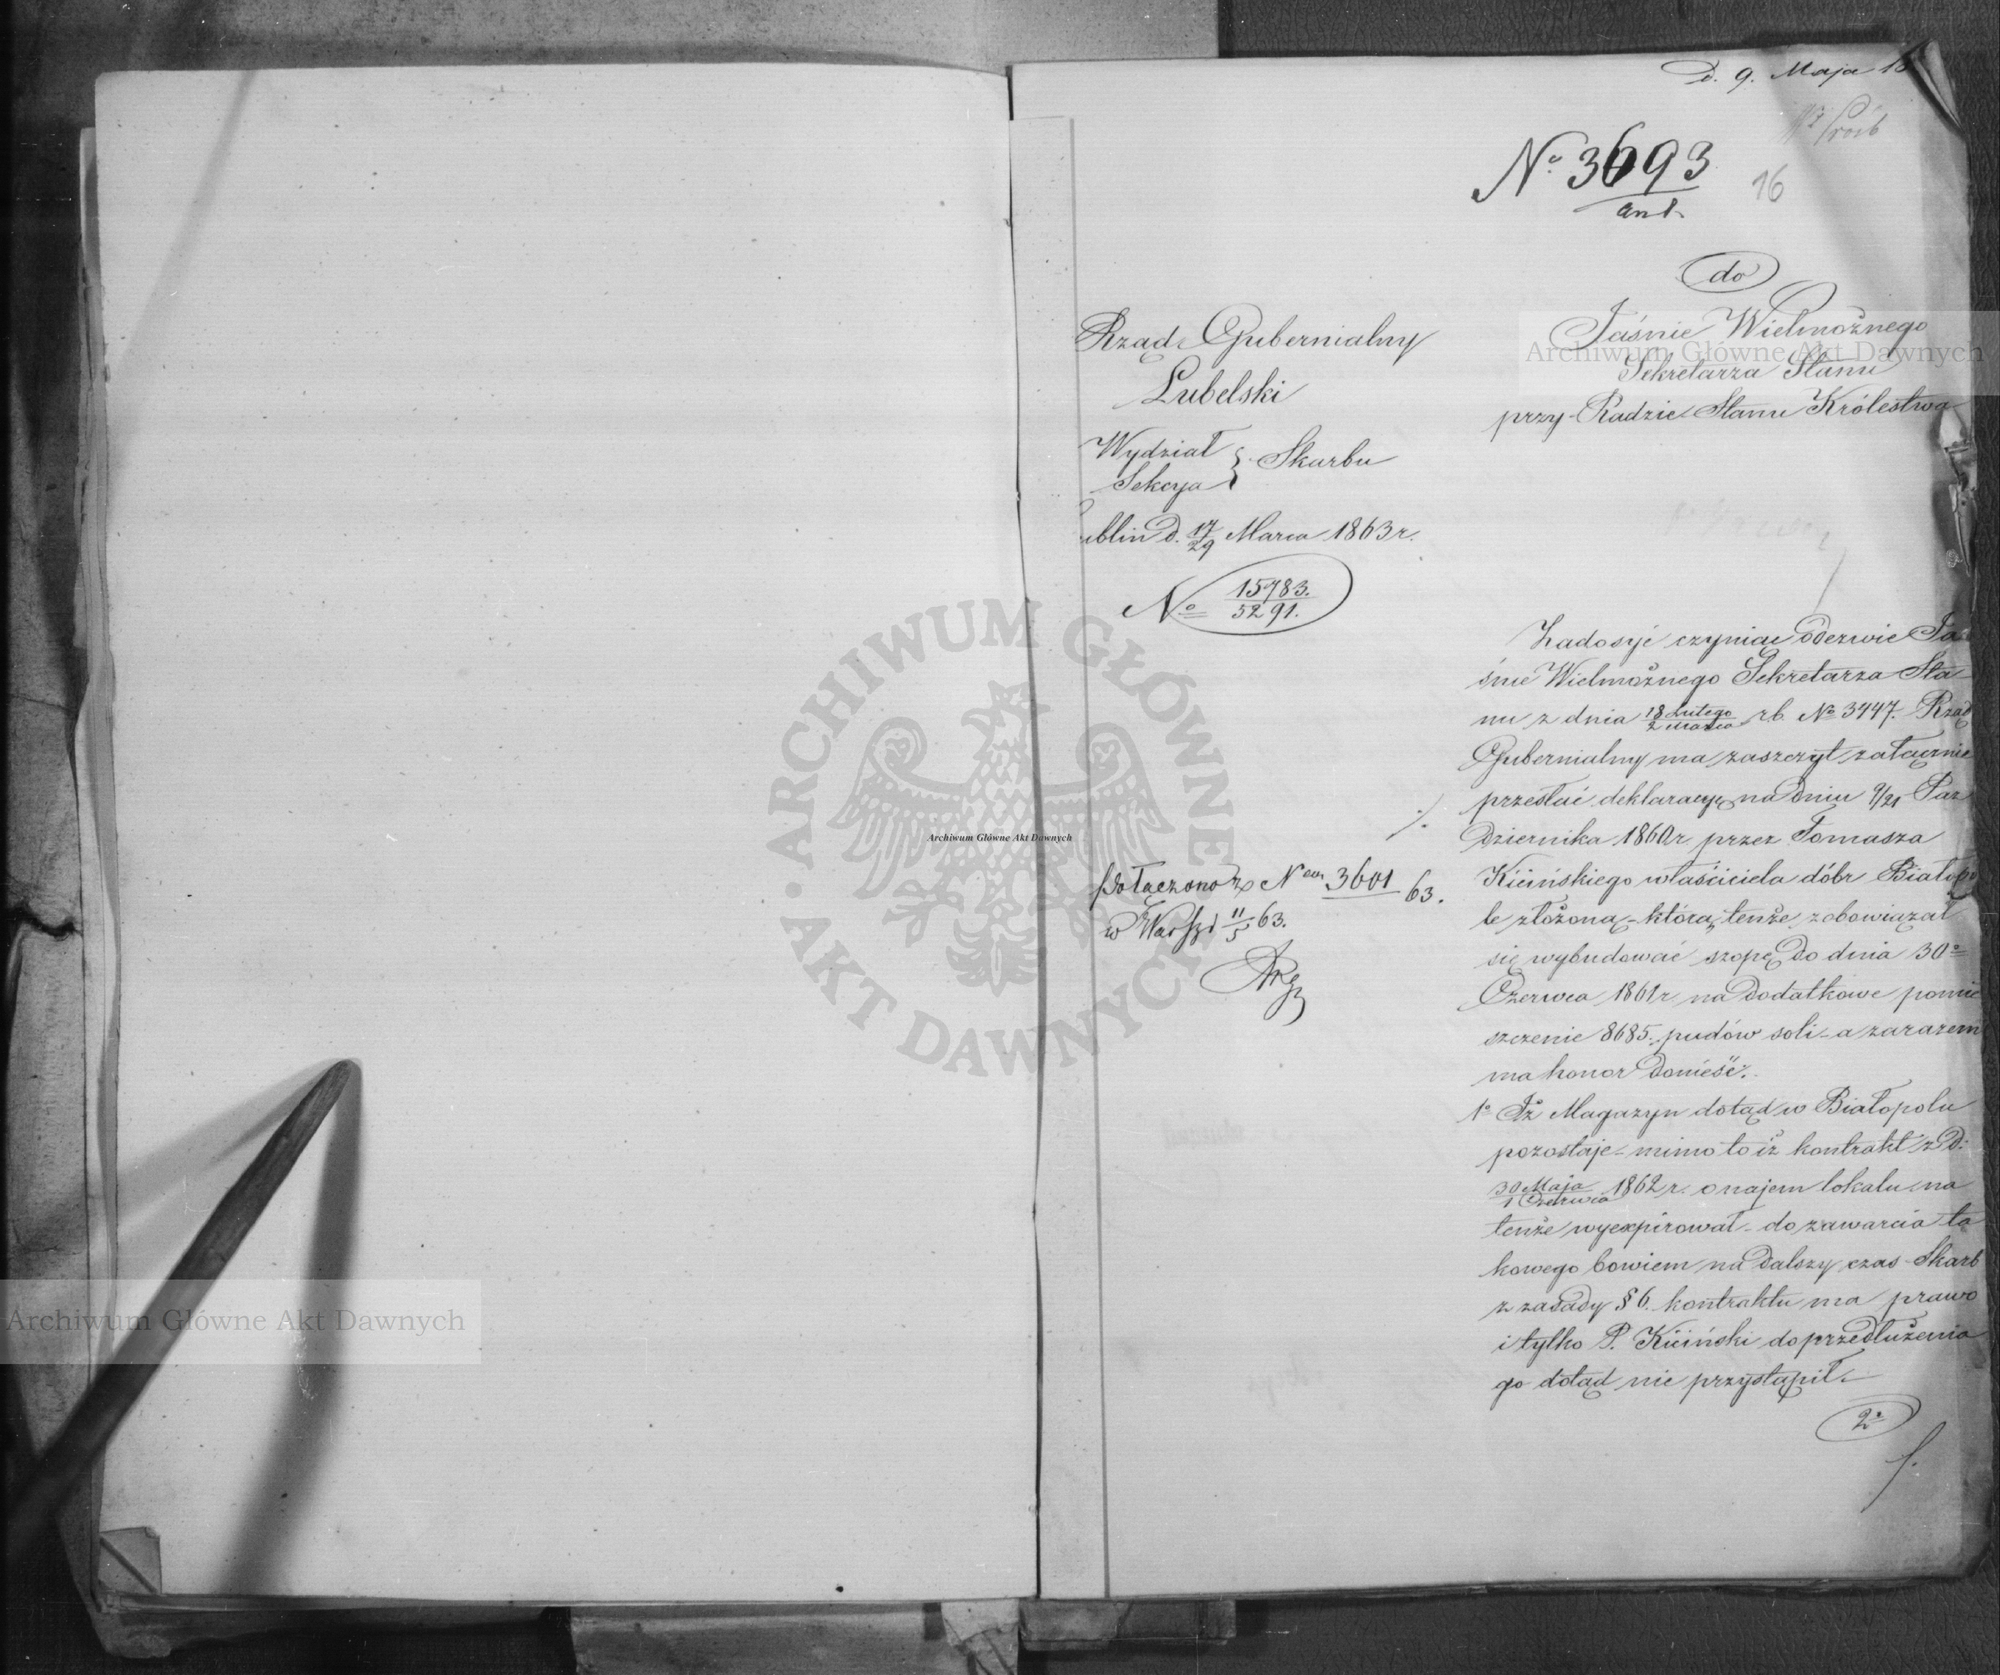 D. 9. Maja 18
No 3693
ant.
16
do
Jaśnie Wielmożnego
Sekretarza Stanu
przy Radzie Stanu Królestwa
Rząd Gubernialny
Lubelski
Wydział
Sekcya } Skarbu
Lublin d. 17/29 Marca 1863 r.
No 15783./5291.
Zadosyć czyniąc odezwie Ja-
śnie Wielmożnego Sekretarza Sta-
nu z dnia 18 Lutego/2 Marca r.b. No 3447. Rząd
Gubernialny ma zaszczyt załącznie
przesłać deklaracyę na dniu 9/21 Paź
dziernika 1860 r. przez Tomasza
Kicińskiego właściciela dóbr Białopo
le złożoną - którą tenże zobowiązał
się wybudować szopę do dnia 30o
Czerwca 1861 r na dodatkowe pomie
szczenie 8685. pudów soli - a zarazem
ma honor donieść:
1o Iż Magazyn dotąd w Białopolu
pozostaje - mimo to iż kontrakt z d:
30 Maja/1 Czerwca 1862 r. o najem lokalu na
tenże wyexpirował - do zawarcia ta
kowego bowiem na dalszy czas Skarb
z zasady § 6. kontraktu ma prawo
i tylko P. Kiciński do przedłużenia
go dotąd nie przystąpił. -
2o
./.
Dołączono do N 3601/63.
w Warsz d 11/5 63.
Archiwum Główne Akt Dawnych
Archiwum Główne Akt Dawnych
Archiwum Główne Akt Dawnych
ARCHIWUM GŁÓWNE AKT DAWNYCH